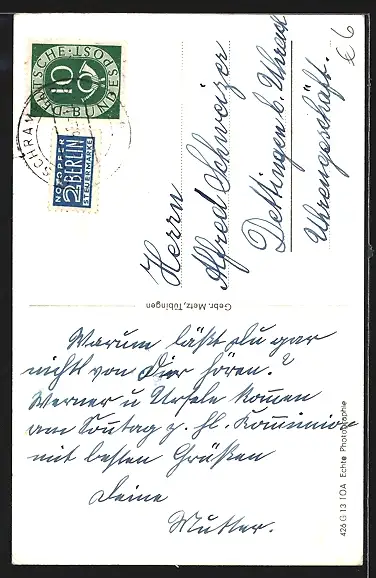 DEUTSCHE BUNDESPOST
10
SCHRAM
NOTOPFER
2 BERLIN
STEUERMARKE
Herrn
Alfred Schweizer
Dettingen b. Urach
Uhrengeschäft.
€ 6
Gebr. Metz, Tübingen
Warum läßt Du gar
nichts von Dir hören?
Werner u Ursula kommen
am Sonntag z. hl. Kommunion
mit besten Grüßen
Deine
Mutter.
426 G 13 IOA Echte Photographie